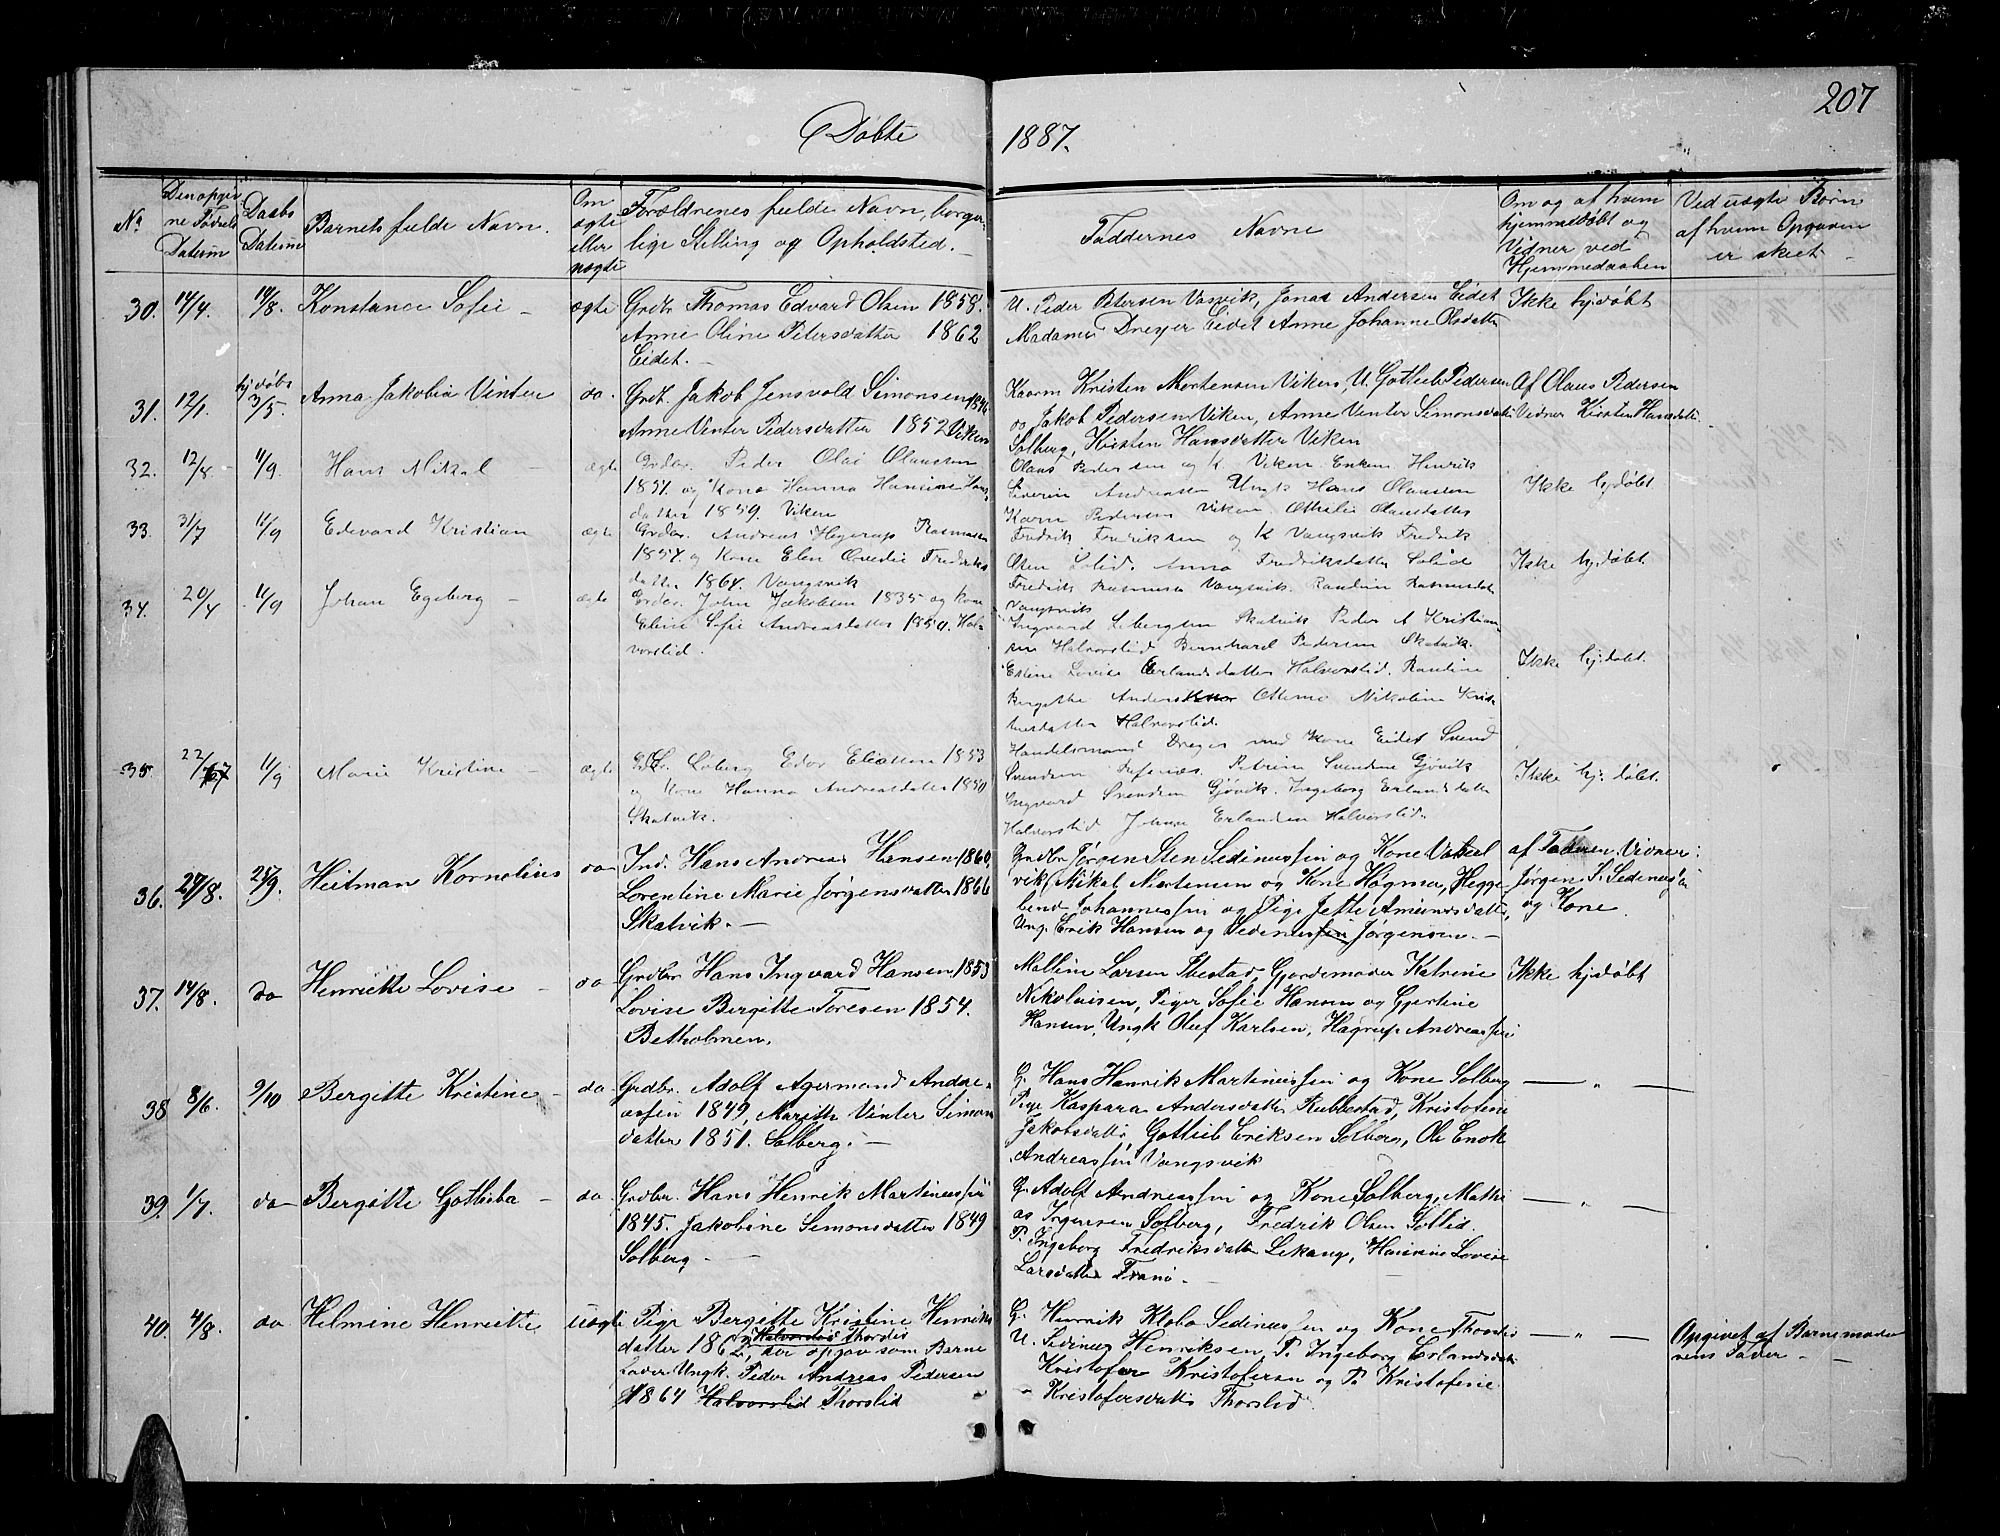 207
Døbte 1887.
No
Den opgivne Fødsels Datum
Daabs Datum
Barnets fulde Navn.
Om ægte eller uægte
Forældrenes fulde Navn, borgerlige Stilling og Opholdsted.
Faddernes Navne
Om og af hvem hjemmedøbt og Vidner ved Hjemmedaaben
Ved uægte Børn af hvem Opgaven er skeet
30. 14/4. 14/8. Konstance Sofie - ægte Grdbr Thomas Edvard Olsen 1858.
Anne Oline Petersdatter 1862
Eidet. -
U. Peder Petersen Vasvik, Jonas Andersen Eidet
Madame Dreyer Eidet Anne Johanne Olsdatter
Ikke hjdøbt
31. 12/1. hjdøbt 3/5. Anna Jakobia Vinter do. Grdb. Jakob Jensvold Simonsen 1846
Anne Venter Pedersdatter 1852 Viken
Kaarm Kristen Mortensen Viken, U. Gotlieb Pedersen
og Jakob Pedersen Viken, Anne Venter Simonsdatt
Solberg, Kirsten Hansdatter Viken
Af Olaus Pedersen
Vidner Kirsten Hansdatt
32. 12/8. 11/9. Hans Mikal - ægte Grdbr. Peder Olai Olaussen
1857. og Kone Hanna Hansine Hans-
datter 1859. Viken
Olaus Pedersen og K Viken. Enken Henrik
Severin Andreasen Ungk Hans Olaussen
Karen Pedersen Viken Othelie Olausdatter
Ikke hjdøbt.
33. 31/7 11/9 Edevard Kristian ægte Grdbr. Andreas Hegerup Rasmussen
1857. og Kone Elen Fredriks
datter 1864. Vangsvik
Fredrik Fredriksen og K Vangsvik Fredrik
Olsen Solid. Anna Fredriksdatter Solid
Fredrik Rasmussen Vangsvik. Randine Rasmusdat
Vangsvik
Ikke hjdøbt.
34. 20/4 11/9 Johan Egeberg - ægte Grdbr. John Jakobsen 1835 og Kone
Eline Sofie Andreasdatter 1850. Hal-
vorslid.
Ingvard Skatvik Peder A Kristian-
sen Halvorslid Bernhard Pedersen Skatvik.
Estine Lovise Erlandsdatter Halvorslid. Randine
Bergithe Anders Ottemo Nikoline Krist-
nesdatter Halvorslid.
Ikke hj.døbt.
35. 22/7 11/9 Marie Kristine - ægte Edor Eliassen 1853
og Kone Hanna Andreasdatter 1850
Skatvik.
Handelsmand Dreyer med Kone Eidet Svend
Svendsen Refsnæs. Petrine Svendsen Gjøvik
Ingvard Svendsen Gjøvik. Ingeborg Erlandsdatter
Halvorslid Johan Erlandsen Halvorslid.
Ikke hj.døbt.
36. 27/8. 25/9. Heitman Kornelius do Ind. Hans Andreas Hansen 1860.
Lorentine Marie Jørgensdatter 1866
Skatvik. -
Grdbr Jørgen Sten Sedeniussen og Kone
vik, Mikal Mortensen og Kone Høgmo, Hegge-
lund Johannessen og Pige Jette Amundsdatter,
Ung. Erik Hansen og Sedenius Jørgensen. -
af Faderen. Vidner:
Jørgen S. Sedeniussen
og Kone.
37. 14/8. do Henriette Lovise - do Grdbr. Hans Ingvard Hansen 1853
Lovise Bergitte Toresen 1854.
Betholmen.
Malline Larsen Ibestad, Gjordemoder Katrine
Nikolaisen, Piger Sofie Hansen og Gjertine
Hansen, Ungk Oluf Karlsen, Hagrup Andreassen
Ikke hjdøbt
38 8/6. 9/10 Bergitte Kristine - do Grdbr. Adolf Agermand Andre-
assen 1849, Marith Vinter Simons
datter 1851. Solberg. -
G. Hans Henrik Martinussen og Kone Solberg
Pige Kaspara Andersdatter Rubbestad, Kristofine
Jakobsdatter, Gotlieb Eriksen Solberg, Ole Enok
Andreassen Vangsvik
— " —
39. 1/7. do Bergitte Gotheba - do. Grdbr. Hans Henrik Martinussen
1845. Jakobine Simonsdatter 1849
Solberg -
G. Adolf Andreassen og Kone Solberg, Mathi
as Ingersen Solberg, Fredrik Olsen Sollid.
P. Ingeborg Fredriksdatter Lekang, Hansine Lovise
Larsdatter Tranø. -
— " —
40. 4/8. do Helmine Henriette uægte Pige Bergitte Kristine Henriks
Halvorslid Thorslid
datter 1862, der opgav som Barne
fader Ungk. Peder Andreas Pedersen
1864 Halvorslid Thorslid
G. Henrik Klobo Sedenussen og Kone Thorslid
U. Sedenius Henriksen, P. Ingeborg Erlandsdatt.
Kristofer Kristofersen og P. Kristofine
Kristofersdatter Thorslid.
— " —
Opgivet af Barnemode-
rens Fader -